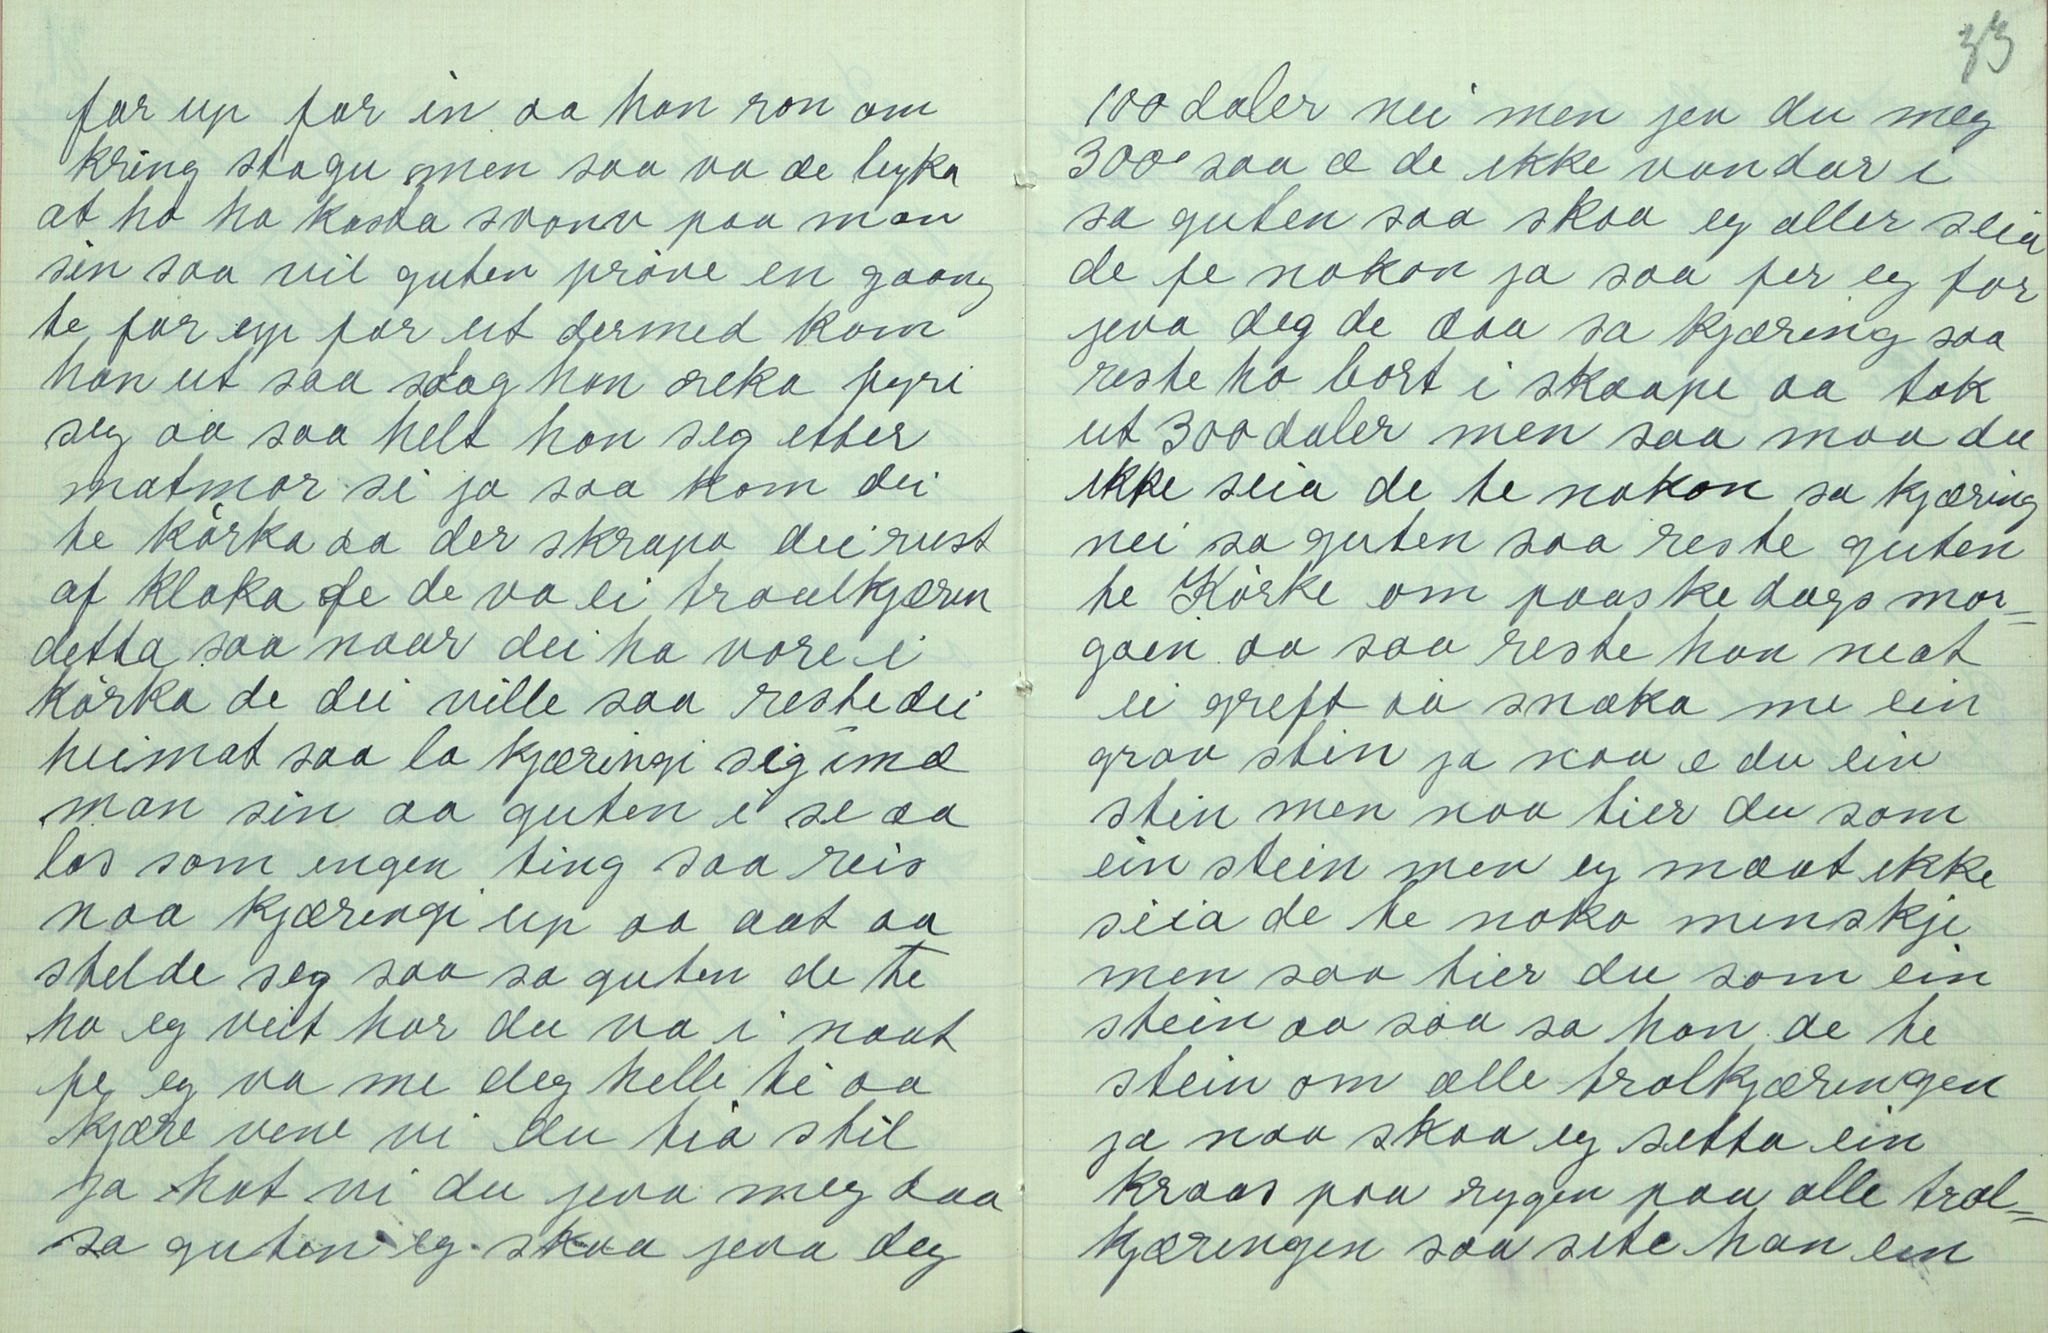 far up far in aa han ron om
kring stogu men saa va de lyka
at ho ha kasta svovn paa man
sin saa vil guten pröve en gaang
te far up far ut dermed kom
han ut saa saag han reka fyri
seg aa saa helt han seg etter
matmor si ja saa kom dei
te körka aa der skrapa dei rust
af kloka fe de va ei traulkjæren
detta saa naar dei ha vore i
körka de dei ville saa reste dei
heimat saa la kjæringi sig imæ
man sin aa guten i se aa
las som engen ting saa reis
naa kjæringi up aa aat aa
stelde seg saa sa guten de te
ho eg veit hor du va i naat
fe eg va me deg helle ti aa
kjære vene vi du tia stil
ja hot vi du jeva meg daa
sa guten eg skaa jeva deg
33
100 daler nei men jev du meg
300 saa æ de ikke vandar i
sa guten saa skaa eg aller seia
de fe nokon ja saa fer eg for
jeva deg de daa sa kjæring saa
reste ho bort i skaape aa tok
ut 300 daler men saa maa du
ikke seia de te nokon sa kjæring
nei sa guten saa reste guten
te Körke om paaskedags mor=
goen aa saa reste han neat
ei greft aa snæka me ein
graa stin ja naa e du ein
stin men naa tier du som
ein stein men eg mæat ikke
seia de te noko menskje
men saa tier du som ein
stein aa saa sa han de te
stein om ælle trolkjæringen
ja naa skaa eg setta ein
kraas paa rygen paa alle trol=
kjæringen saa sete han ein